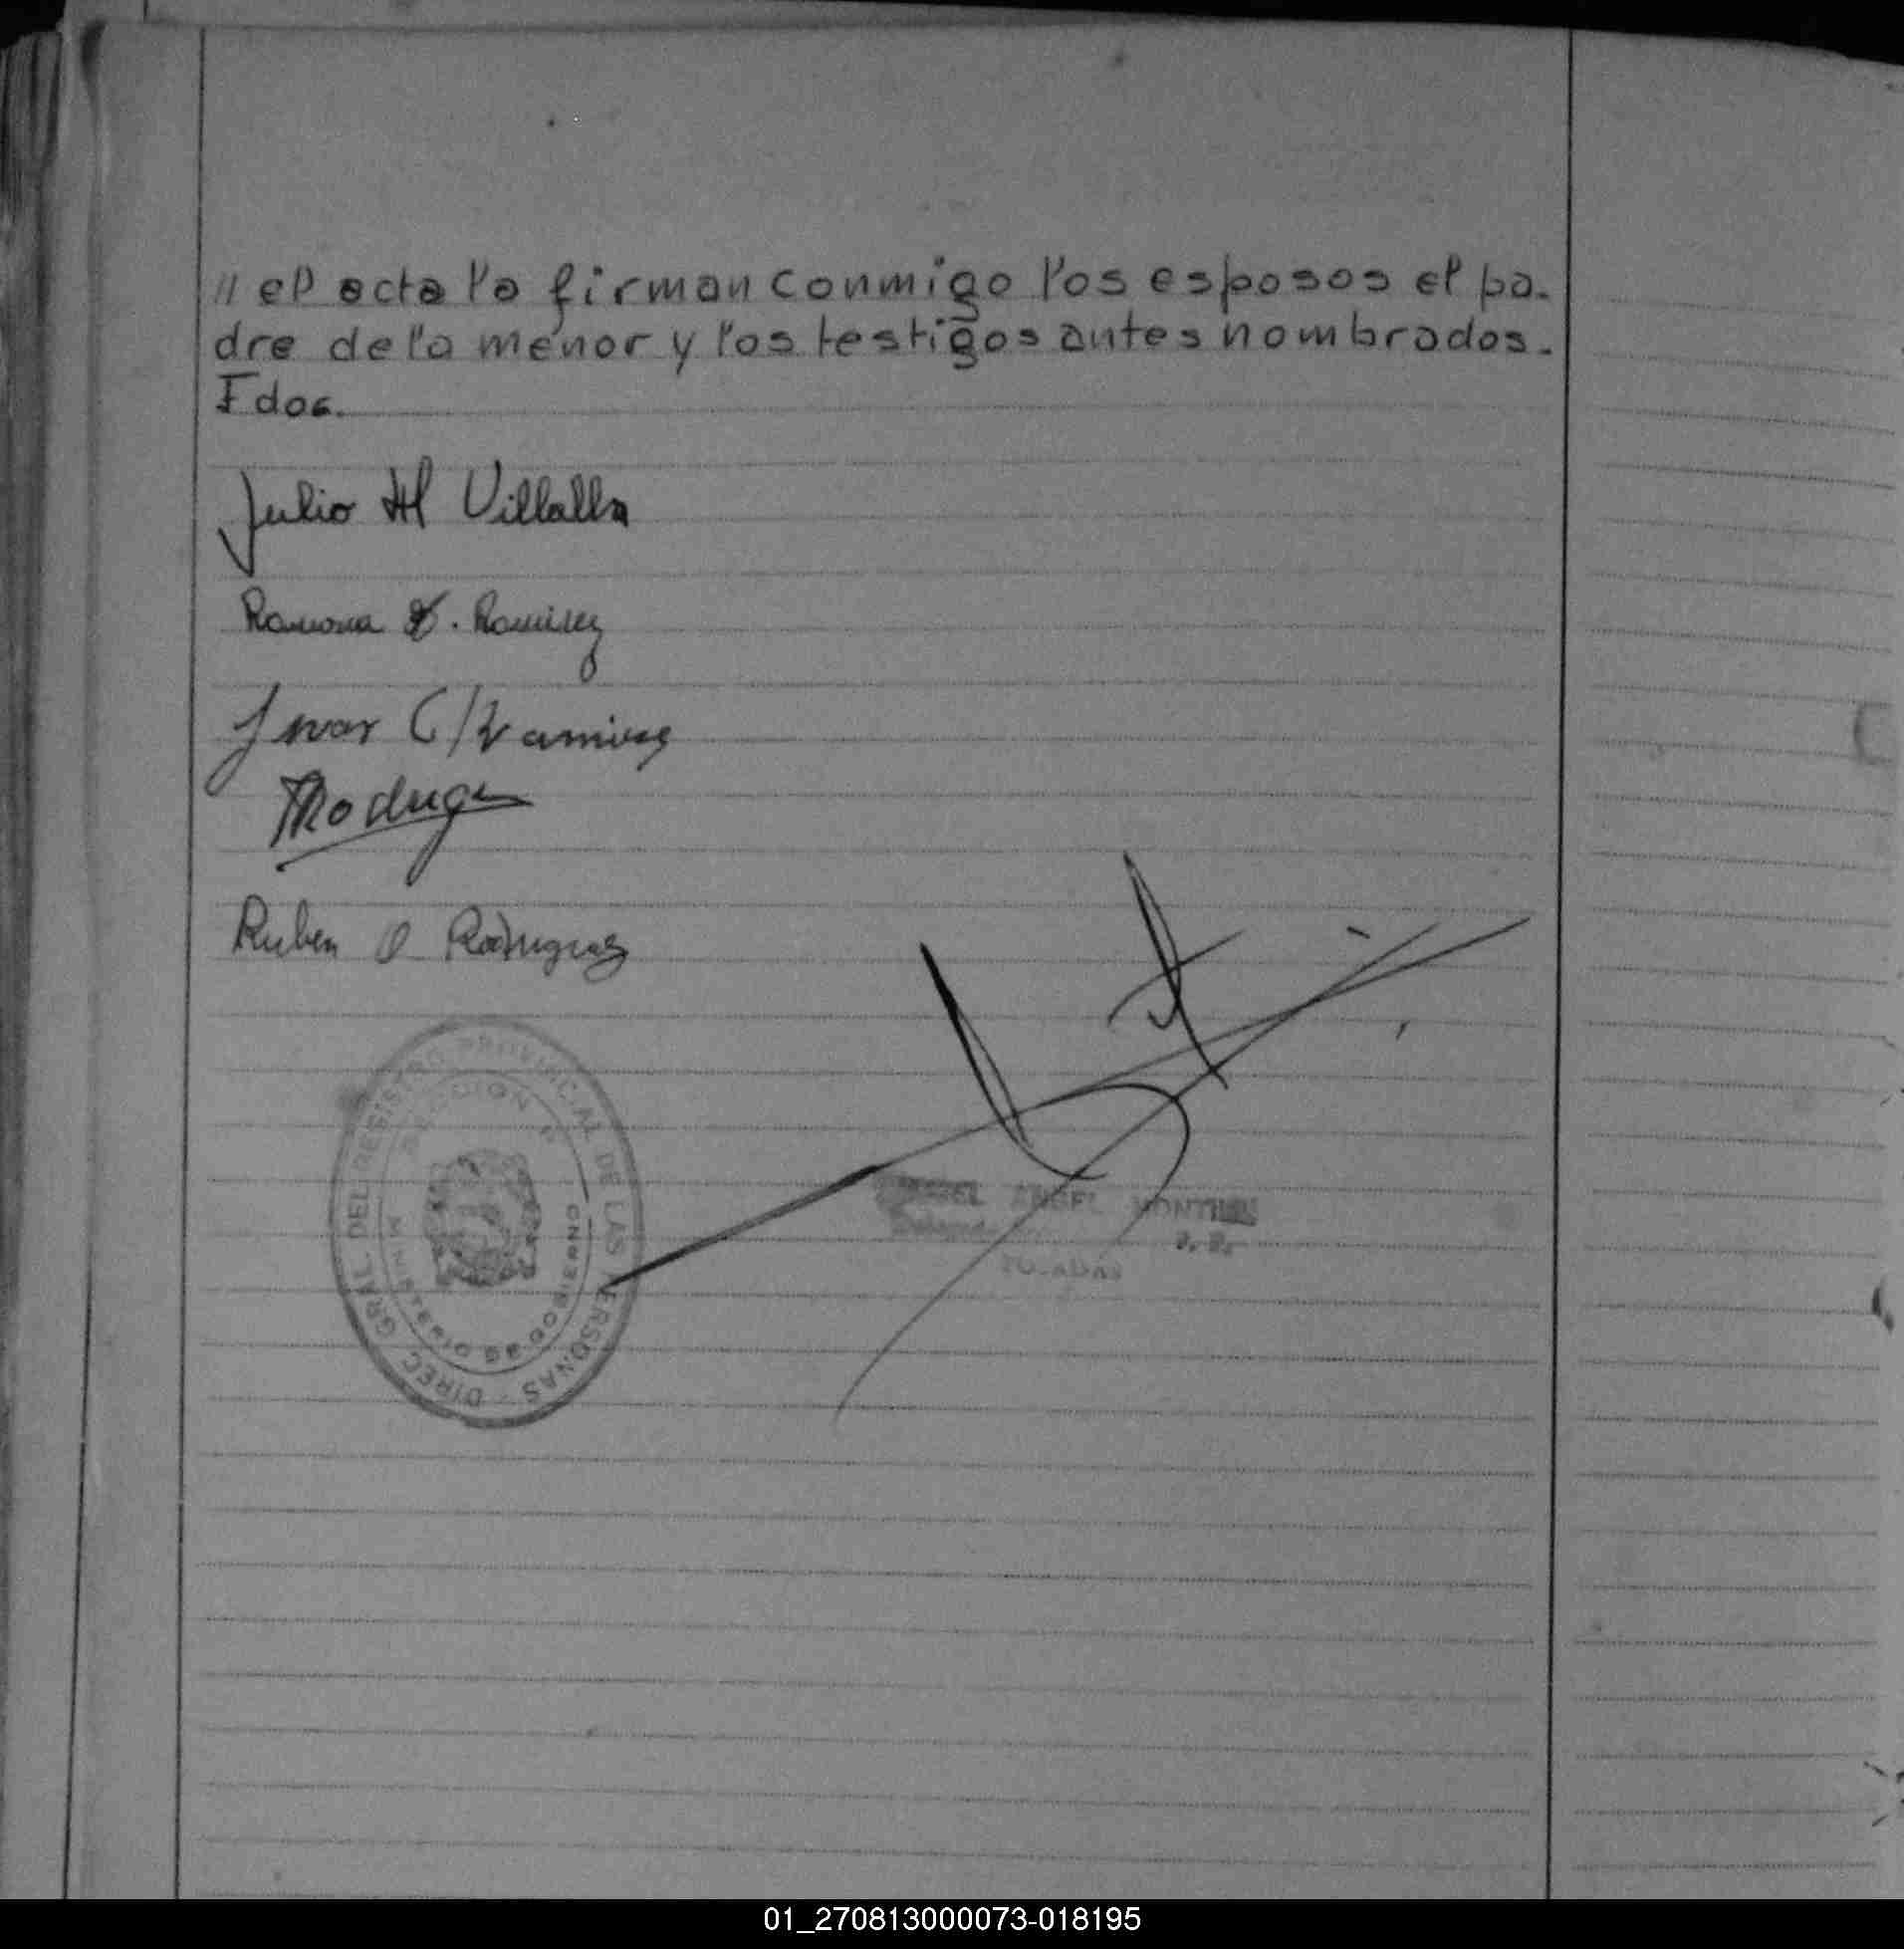 // el acta la firman conmigo los esposos el pa-
dre de la menor y los testigos antes nombrados.
Fdos.
Julio H Villalba
Ramona Ramirez
Ramirez
Ruben O Rodriguez
DIREC GRAL DEL REGISTRO PROVINCIAL DE LAS PERSONAS -
SECCION
MINISTERIO DE GOBIERNO
ANGEL
01_270813000073-018195